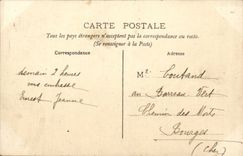 CARTE POSTALE
Tous les pays étrangers n'acceptent pas la correspondance au recto.
(Se renseigner à la Poste)
Correspondance
Adresse
demain 2 heures
vous embrasse
Ernest Jeanne
Mr Coutand
au Barreau Vert
Chemin des Morts
Bourges
(Cher)